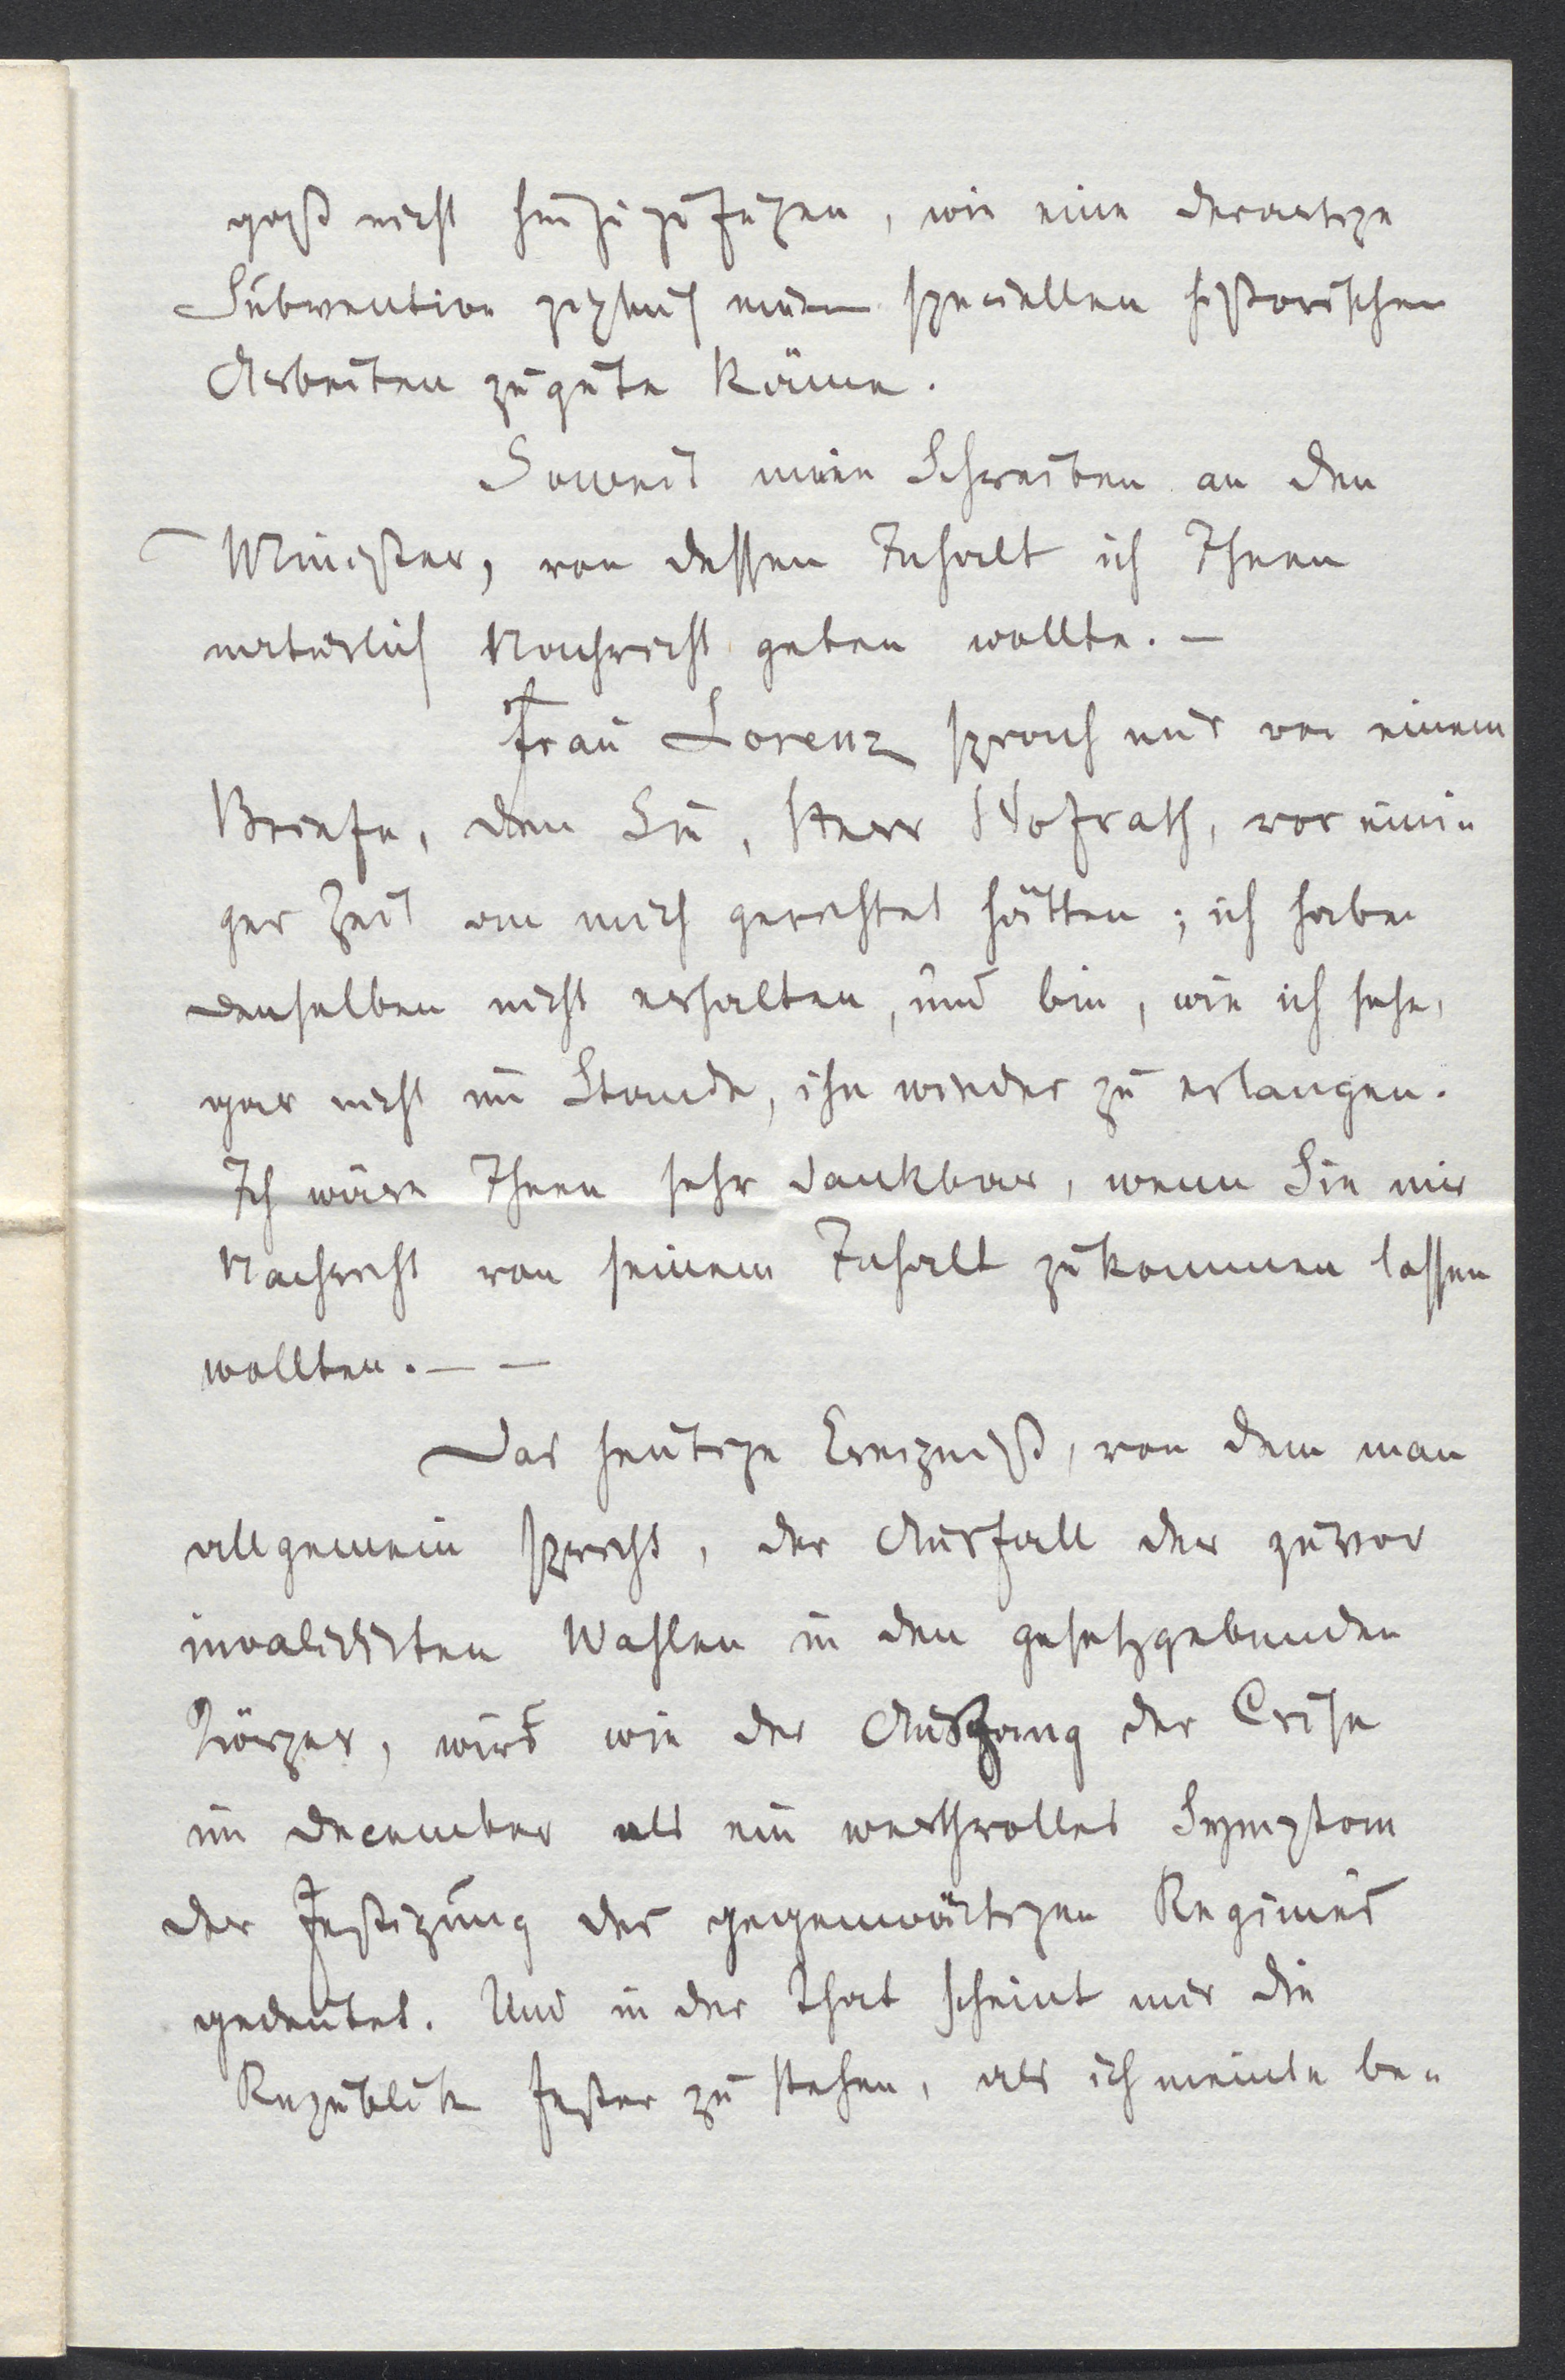 gaß nicht hinzuzufügen, wie eine derartige
Subvention zugleich meinen speciellen historischen
Arbeiten zugute käme.
Soweit mein Schreiben an den
Minister, von dessen Inhalt ich Ihnen
natürlich Nachricht geben wollte. —
Frau Lorenz sprach mir von einem
Briefe, den Sie, Herr Hofrath, vor eini-
ger Zeit an mich gerichtet hätten; ich habe
denselben nicht erhalten, und bin, wie ich sehe,
gar nicht im Stande, ihn wieder zu erlangen.
Ich wäre Ihnen sehr dankbar, wenn Sie mir
Nachricht von seinem Inhalt zukommen lassen
wollten. — —
Das heutige Ereigniß, von dem man
allgemein spricht, der Ausfall der zuvor
invalidirten Wahlen in den gesetzgebenden
Körper, wird wie der Ausgang der Crise
im December als ein werthvolles Symptom
der Festigung des gegenwärtigen Regimes
gedeutet. Und in der That scheint mir die
Republik fester zu stehen, als ich meinte be-